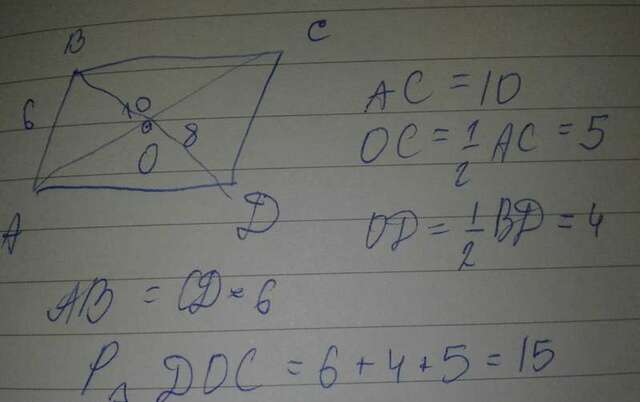 B
C
6
10
8
O
A
D
AC = 10
OC = 1/2 AC = 5
OD = 1/2 BD = 4
AB = CD = 6
P△ DOC = 6 + 4 + 5 = 15